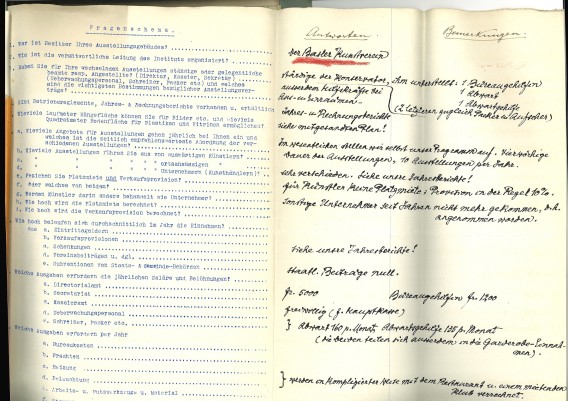 Fragenschema.
Antworten.
Bemerkungen.
1. Wer ist Besitzer Ihres Ausstellungsgebäudes?
der Basler Kunstverein
2. Wie ist die verantwortliche Leitung des Institute organisiert?
3. Haben Sie für Ihre wechselnden Ausstellungen ständige oder gelegentliche
beamte resp. Angestellte? (Direktor, Kassier, Sekretär)
(Ueberwachungspersonal, Schreiner, Packer etc) und welches
sind die wichtigsten Bestimmungen bezüglicher Anstellungsverträge?
ständige der Konservator, ihm unterstellt: 1 Bureaugehilfen
1 Abwart
1 Abwartgehilfe
(2 letzteren zugleich Packer u. Aufseher)
ausserdem Hilfskräfte bei
Aus- u. Einräumen.
Sind Betriebsreglemente, Jahres- & Rechnungsberichte vorhanden u. erhältlich
Jahres- u. Rechnungsberichte
Wieviele Laufmeter Hängefläche können Sie für Bilder etc. und wieviele
Quadratmeter Bodenfläche für Plastiken und Vitrinen ermöglichen?
siehe mitgesandten Plan!
a. Wieviele Angebote für Ausstellungen gehen jährlich bei Ihnen ein und
welches ist die zeitlich empfehlenswerteste Anordnung der verschiedenen Ausstellungen?
Im wesentlichen stellen wir selbst unser Programm auf. Vierwöchige
Dauer der Ausstellungen, 10 Ausstellungen per Jahr.
b. Wieviele Ausstellungen führen Sie aus von auswärtigen Künstlern?
sehr verschieden. Siehe unsere Jahresberichte!
c. " " " " ortsansässigen "
d. " " " " Unternehmern (Kunsthändlern)?
e. Beziehen Sie Platzmiete und Verkaufsprovision?
für Künstler keine Platzmiete; Provision in der Regel 10%.
f. oder welches von beiden?
g. Werden Künstler darin anders behandelt wie Unternehmer?
Sonstige Unternehmer seit Jahren nicht mehr gekommen, d.h.
angenommen worden.
h. Wie hoch wird die Platzmiete berechnet?
i. Wie hoch wird die Verkaufsprovision berechnet?
Wie hoch belaufen sich durchschnittlich im Jahr die Einnahmen?
aus a. Eintrittsgeldern
b. Verkaufsprovisionen
siehe unsere Jahresberichte!
c. Schenkungen
d. Vereinsbeiträgen u. dgl.
e. Subventionen von Staats- & Gemeinde-Behörden
staatl. Beiträge null.
Welche Ausgaben erfordern die jährlichen Saläre und Belöhnungen?
a. Directorialamt
fr. 5000
Bureaugehilfen fr. 1200
b. Secretariat
c. Kassieramt
freiwillig (f. Hauptkasse)
d. Ueberwachungspersonal
} Abwart 160 p. Monat Abwartgehilfe 125 p. Monat
e. Schreiner, Packer etc.
(die beiden teilen sich ausserdem in die Garderobe-Einnahmen.)
Welche Ausgaben erfordern per Jahr
a. Bureaukosten
b. Frachten
c. Heizung
d. Beleuchtung
} werden in komplizierter Weise mit dem Restaurant u. einem mietenden
Klub verrechnet.
e. Arbeits- u. Putzwerkzeuge u. Material